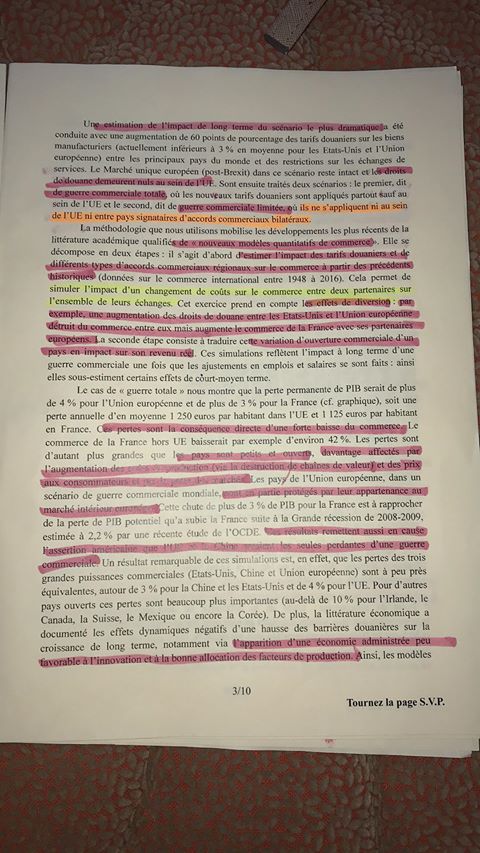 Une estimation de l'impact de long terme du scénario le plus dramatique a été
conduite avec une augmentation de 60 points de pourcentage des tarifs douaniers sur les biens
manufacturiers (actuellement inférieurs à 3 % en moyenne pour les Etats-Unis et l'Union
européenne) entre les principaux pays du monde et des restrictions sur les échanges de
services. Le Marché unique européen (post-Brexit) dans ce scénario reste intact et les droits
de douane demeurent nuls au sein de l'UE. Sont ensuite traités deux scénarios : le premier, dit
de guerre commerciale totale, où les nouveaux tarifs douaniers sont appliqués partout sauf au
sein de l'UE et le second, dit de guerre commerciale limitée, où ils ne s'appliquent ni au sein
de l'UE ni entre pays signataires d'accords commerciaux bilatéraux.
La méthodologie que nous utilisons mobilise les développements les plus récents de la
littérature académique qualifiés de « nouveaux modèles quantitatifs de commerce ». Elle se
décompose en deux étapes : il s'agit d'abord d'estimer l'impact des tarifs douaniers et de
différents types d'accords commerciaux régionaux sur le commerce à partir des précédents
historiques (données sur le commerce international entre 1948 à 2016). Cela permet de
simuler l'impact d'un changement de coûts sur le commerce entre deux partenaires sur
l'ensemble de leurs échanges. Cet exercice prend en compte les effets de diversion : par
exemple, une augmentation des droits de douane entre les Etats-Unis et l'Union européenne
détruit du commerce entre eux mais augmente le commerce de la France avec ses partenaires
européens. La seconde étape consiste à traduire cette variation d'ouverture commerciale d'un
pays en impact sur son revenu réel. Ces simulations reflètent l'impact à long terme d'une
guerre commerciale une fois que les ajustements en emplois et salaires se sont faits : ainsi
elles sous-estiment certains effets de court-moyen terme.
Le cas de « guerre totale » nous montre que la perte permanente de PIB serait de plus
de 4 % pour l'Union européenne et de plus de 3 % pour la France (cf. graphique), soit une
perte annuelle d'en moyenne 1 250 euros par habitant dans l'UE et 1 125 euros par habitant
en France. Ces pertes sont la conséquence directe d'une forte baisse du commerce. Le
commerce de la France hors UE baisserait par exemple d'environ 42 %. Les pertes sont
d'autant plus grandes que les pays sont petits et ouverts, davantage affectés par
l'augmentation des coûts de production (via la destruction de chaînes de valeur) et des prix
aux consommateurs et Les pays de l'Union européenne, dans un
scénario de guerre commerciale mondiale, sont en partie protégés par leur appartenance au
marché intérieur européen. Cette chute de plus de 3 % de PIB pour la France est à rapprocher
de la perte de PIB potentiel qu'a subie la France suite à la Grande récession de 2008-2009,
estimée à 2,2 % par une récente étude de l'OCDE. Ces résultats remettent aussi en cause
l'assertion américaine que l'UE et la Chine seraient les seules perdantes d'une guerre
commerciale. Un résultat remarquable de ces simulations est, en effet, que les pertes des trois
grandes puissances commerciales (Etats-Unis, Chine et Union européenne) sont à peu près
équivalentes, autour de 3 % pour la Chine et les Etats-Unis et de 4 % pour l'UE. Pour d'autres
pays ouverts ces pertes sont beaucoup plus importantes (au-delà de 10 % pour l'Irlande, le
Canada, la Suisse, le Mexique ou encore la Corée). De plus, la littérature économique a
documenté les effets dynamiques négatifs d'une hausse des barrières douanières sur la
croissance de long terme, notamment via l'apparition d'une économie administrée peu
favorable à l'innovation et à la bonne allocation des facteurs de production. Ainsi, les modèles
3/10
Tournez la page S.V.P.